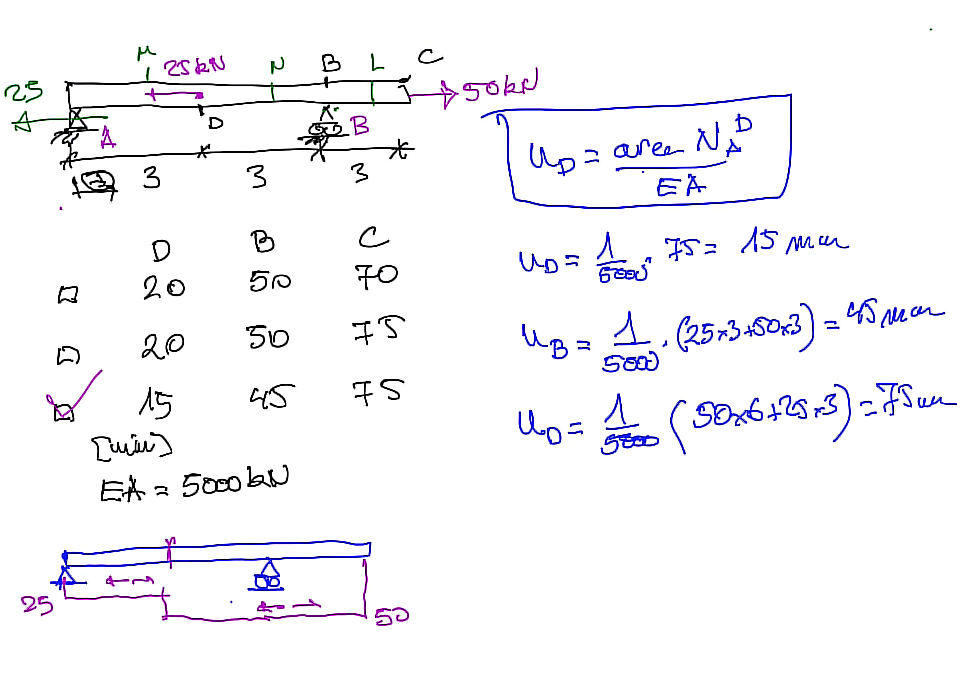 M 25kN N B L C
25 50kN
A D B
3 3 3
u_D = area N_A^D / EA
D B C
20 50 70
20 50 75
15 45 75
[mm]
EA = 5000 kN
u_D = 1/5000 · 75 = 15 mm
u_B = 1/5000 · (25×3+50×3) = 45 mm
u_D = 1/5000 (50×6+25×3) = 75 mm
25 50